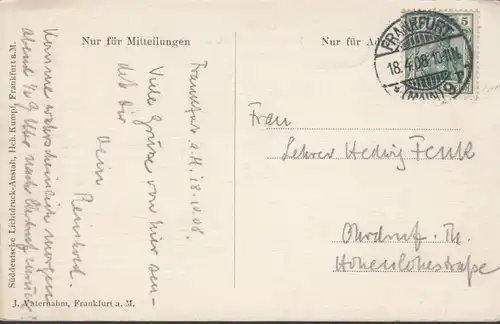 Nur für Mitteilungen
Nur für Ad
FRANKFURT
18.4.08
(MAIN)
9
5
Frankfurt a. M. 18. IV. 08.
Viele Grüße von hier sen-
det dir
dein
Reinhold.
Komme wahrscheinlich morgen
abend ½ 9 Uhr nach Ohrdruf zurück!
Frau
Lehrer Hedwig Fenk
Ohrdruf. Th.
Hohenlohestraße
Süddeutsche Lichtdruck-Anstalt, Hch. Kumpf, Frankfurt a. M.
J. Vaternahm, Frankfurt a. M.